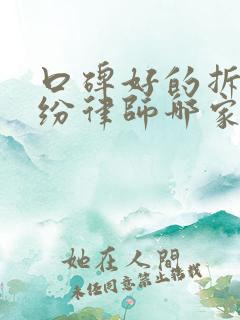 口碑好的拆
纷律师哪家
她在人間
未经同意禁止转载